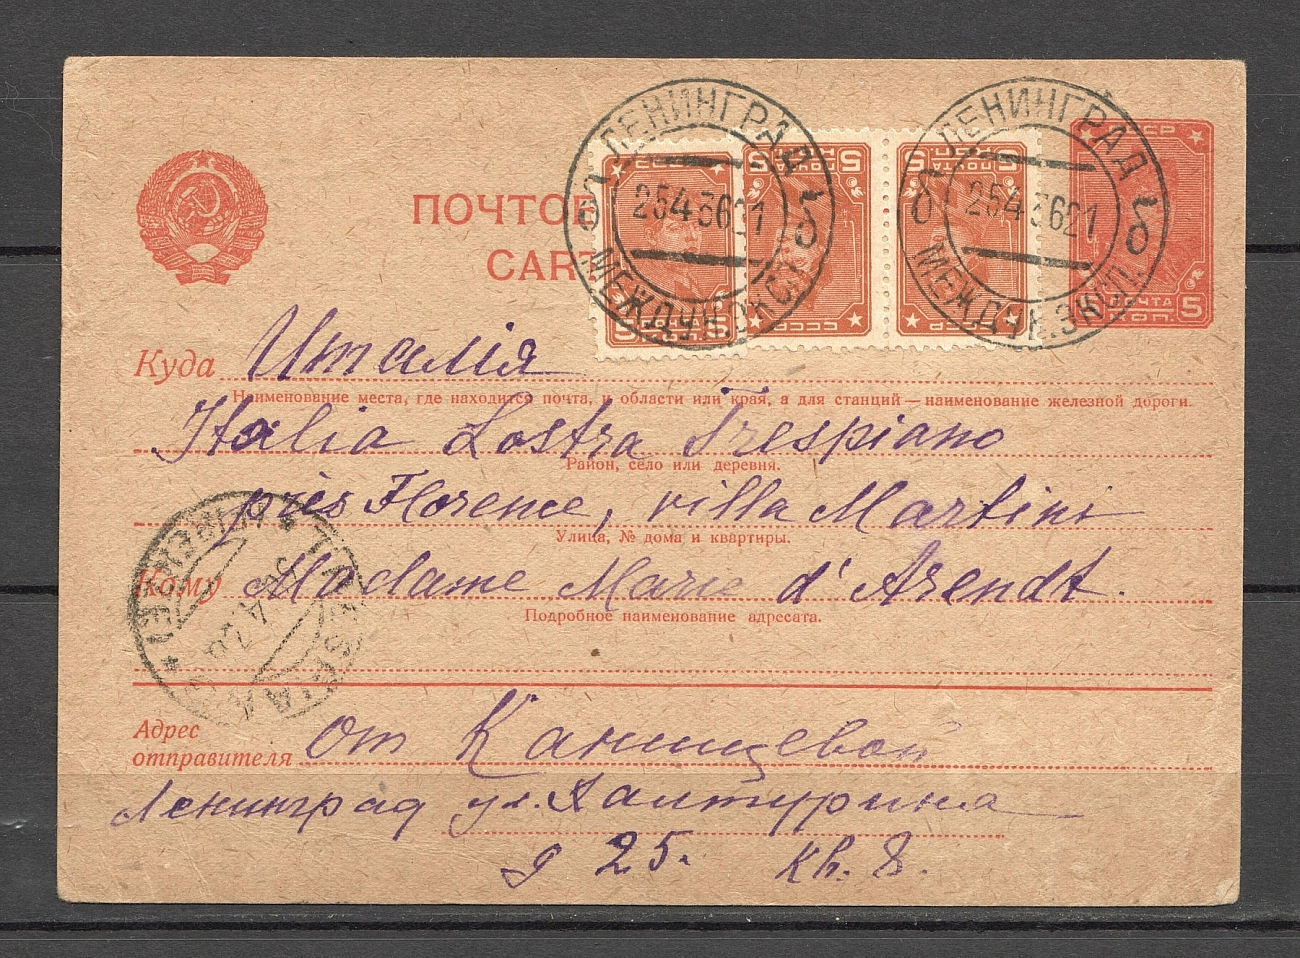 ПОЧТОВ
CART
ЛЕНИНГРАД
б 25 4 36 21 б
МЕЖДУН. ЭКСП.
ЛЕНИНГРАД
б 25 4 36 21 б
МЕЖДУН. ЭКСП.
5 ПОЧТА 5
5 ПОЧТА 5
СССР
СССР
5 ПОЧТА 5
КОП.
Куда Италія
Наименование места, где находится почта, и области или края, а для станций — наименование железной дороги.
Italia Lostra Trespiano
Район, село или деревня.
près Florence, villa Martini
Улица, № дома и квартиры.
Кому Madame Marie d'Arendt.
Подробное наименование адресата.
Адрес
отправителя от Канищевой
Ленинград ул. Халтурина
д 25. кв. 8.